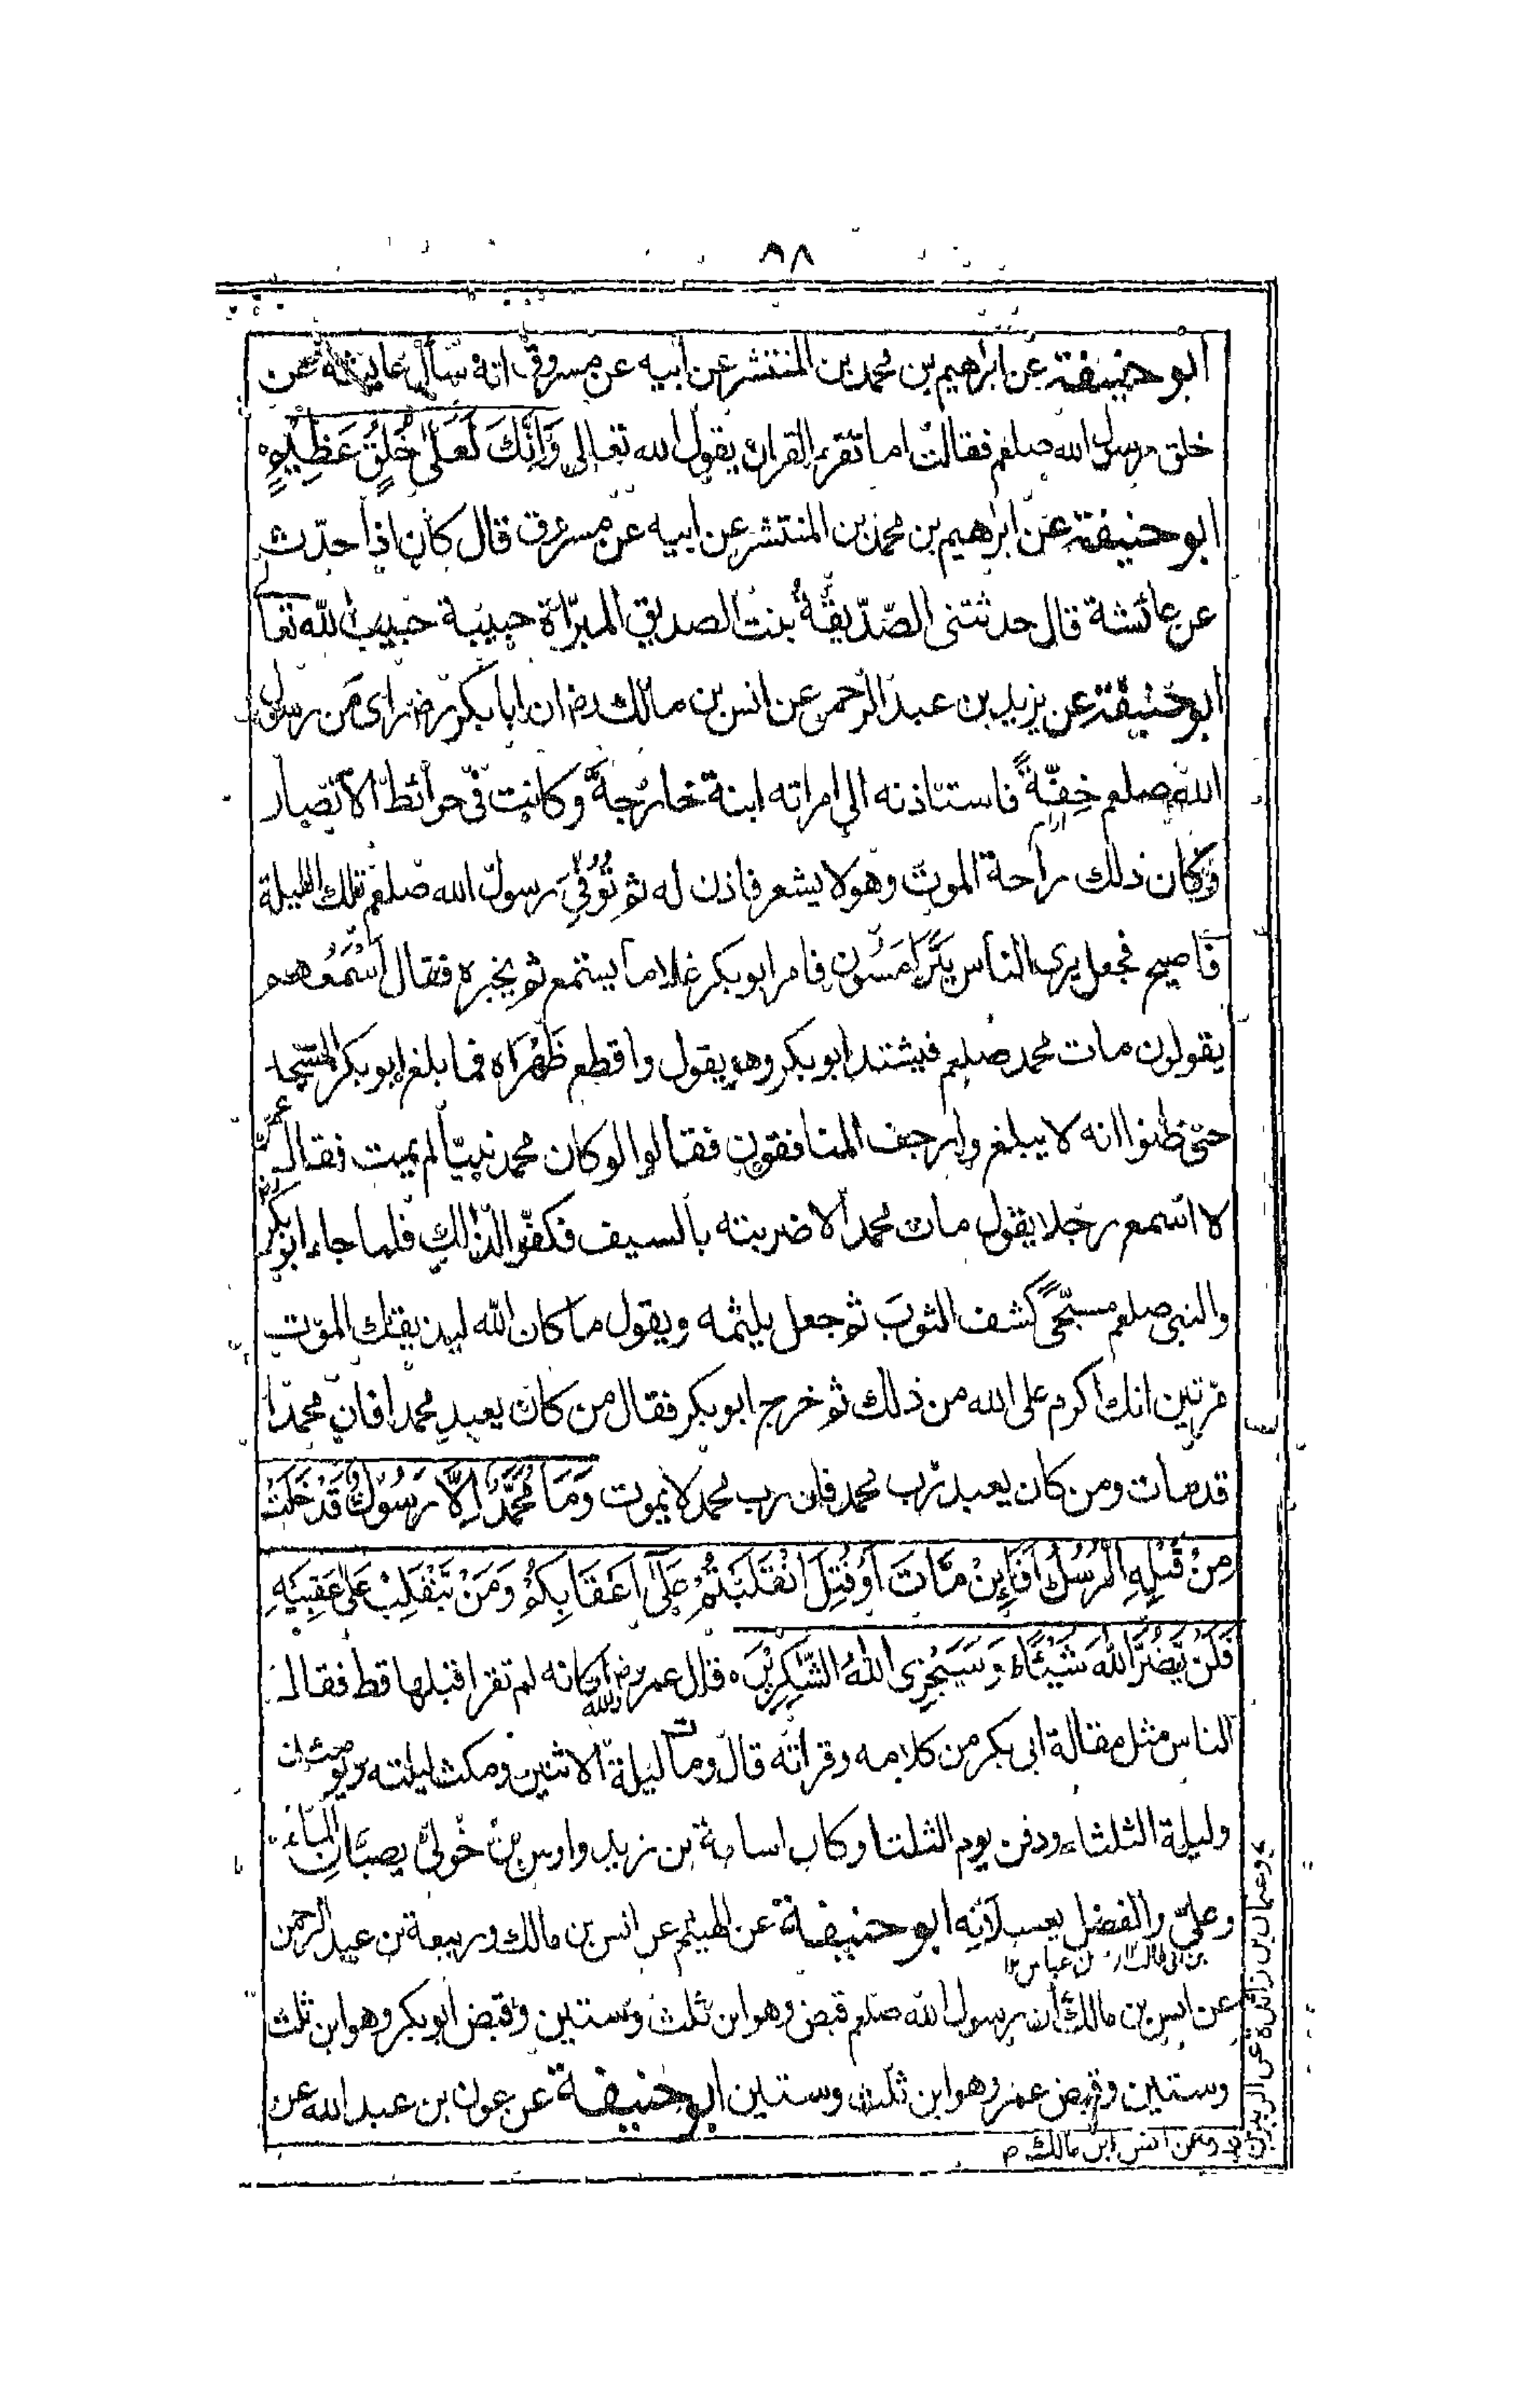 ٩٨
ابو حنيفة عن ابرهيم بن محمد بن المنتشر عن ابيه عن مسروق انه سأل عايشة عن
خلق رسول الله صلعم فقالت اما تقرء القران يقول الله تعالى وَاِنَّكَ لَعَلٰى خُلُقٍ عَظِيْمٍ ه
ابو حنيفة عن ابرهيم بن محمد بن المنتشر عن ابيه عن مسروق قال كان اذا حدّث
عن عائشة قال حدثتنى الصّدّيقةُ بنت الصديق المبرّاة حبيبة حبيب الله تعالى
ابو حنيفة عن يزيد بن عبد الرحمن عن انس بن مالك رض ان ابا بكر رض راى من رسول
الله صلعم خِفّةً فاستاذنه الى امراته ابنة خارجة وكانت فى حوائط الانصار
وكان ذلك راحة الموت وهو لا يشعر فاذن له ثم تُوُفِّيَ رسول الله صلعم تلك الليلة
فاصبح فجعل يرى الناس يترامسون فامر ابو بكر غلاما يستمع ثم يخبره فقال اسمعهم
يقولون مات محمد صلعم فيشتد ابو بكر وهو يقول وا قطع ظَهْرَاه فما بلغ ابو بكر المسجد
حتى ظنوا انه لا يبلغ وارجف المنافقون فقالوا لو كان محمد نبيّا لم يمت فقال عمر رض
لا اسمع رجلا يقول مات محمد الا ضربته بالسيف فكفّوا لذالك فلما جاء ابو بكر
والنبى صلعم مسجّىً كشف الثوبَ ثم جعل يلثمه ويقول ما كان الله ليذيقك الموت
مرتين انك اكرم على الله من ذلك ثم خرج ابو بكر فقال من كان يعبد محمدا فان محمدا
قد مات ومن كان يعبد رب محمد فان رب محمد لا يموت وَمَا مُحَمَّدٌ اِلَّا رَسُوْلٌ قَدْ خَلَتْ
مِنْ قَبْلِهِ الرُّسُلُ اَفَاِئِنْ مَّاتَ اَوْ قُتِلَ انْقَلَبْتُمْ عَلٰى اَعْقَابِكُمْ وَمَنْ يَّنْقَلِبْ عَلٰى عَقِبَيْهِ
فَلَنْ يَّضُرَّ اللهَ شَيْئًا ط وَسَيَجْزِى اللهُ الشّٰكِرِيْنَ ه قال عمر رض والله لكانه لم تقرا قبلها قط فقال
الناس مثل مقالة ابى بكر من كلامه وقراته قال ومات ليلة الاثنين ومكث ليلته ويومئذ
وليلة الثلثاء ودفن يوم الثلثا وكان اسامة بن زيد واوس بن خولىّ يصبّان الماء
وعلىّ والفضل يغسلانه ابو حنيفة عن الهيثم عن انس بن مالك وربيعة بن عبد الرحمن
عن انس بن مالك ان رسول الله صلعم قبض وهو ابن ثلث وستين وقبض ابو بكر وهو ابن ثلث
وستين وقبض عمر وهو ابن ثلث وستين ابو حنيفة عن عون بن عبد الله عن
وعثمان بن زائدة عن الزبير بن
وعن انس ابن مالك